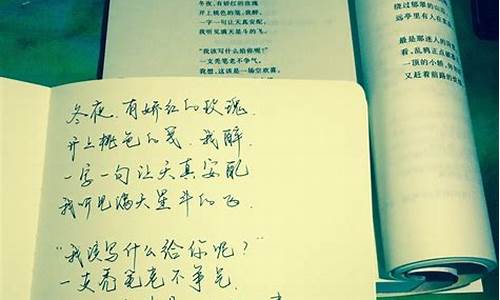 冬夜,有娇红的玫瑰
开上桃色的笺,我醉,
一字一句让天真安配,
我听见满天星斗的飞。
“我该写什么给你呢?”
一支秃笔老不争气。
我想,这该是一场空欢喜。
绕过郁翠的山
远亭里有人在
最是那迷人的
看,乱鸦正点
一顶的小轿,
又赶着前路的
冬夜,有娇红的玫瑰
开上桃色的笺,我醉,
一字一句让天真安配
我听见满天星斗的飞.
“我该写什么给你呢?”
一支秃笔老不争气.